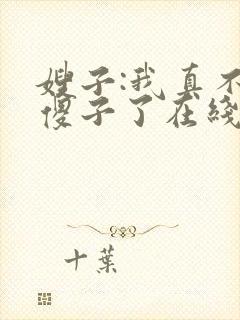 嫂子:我真不
傻子了在线
十葉